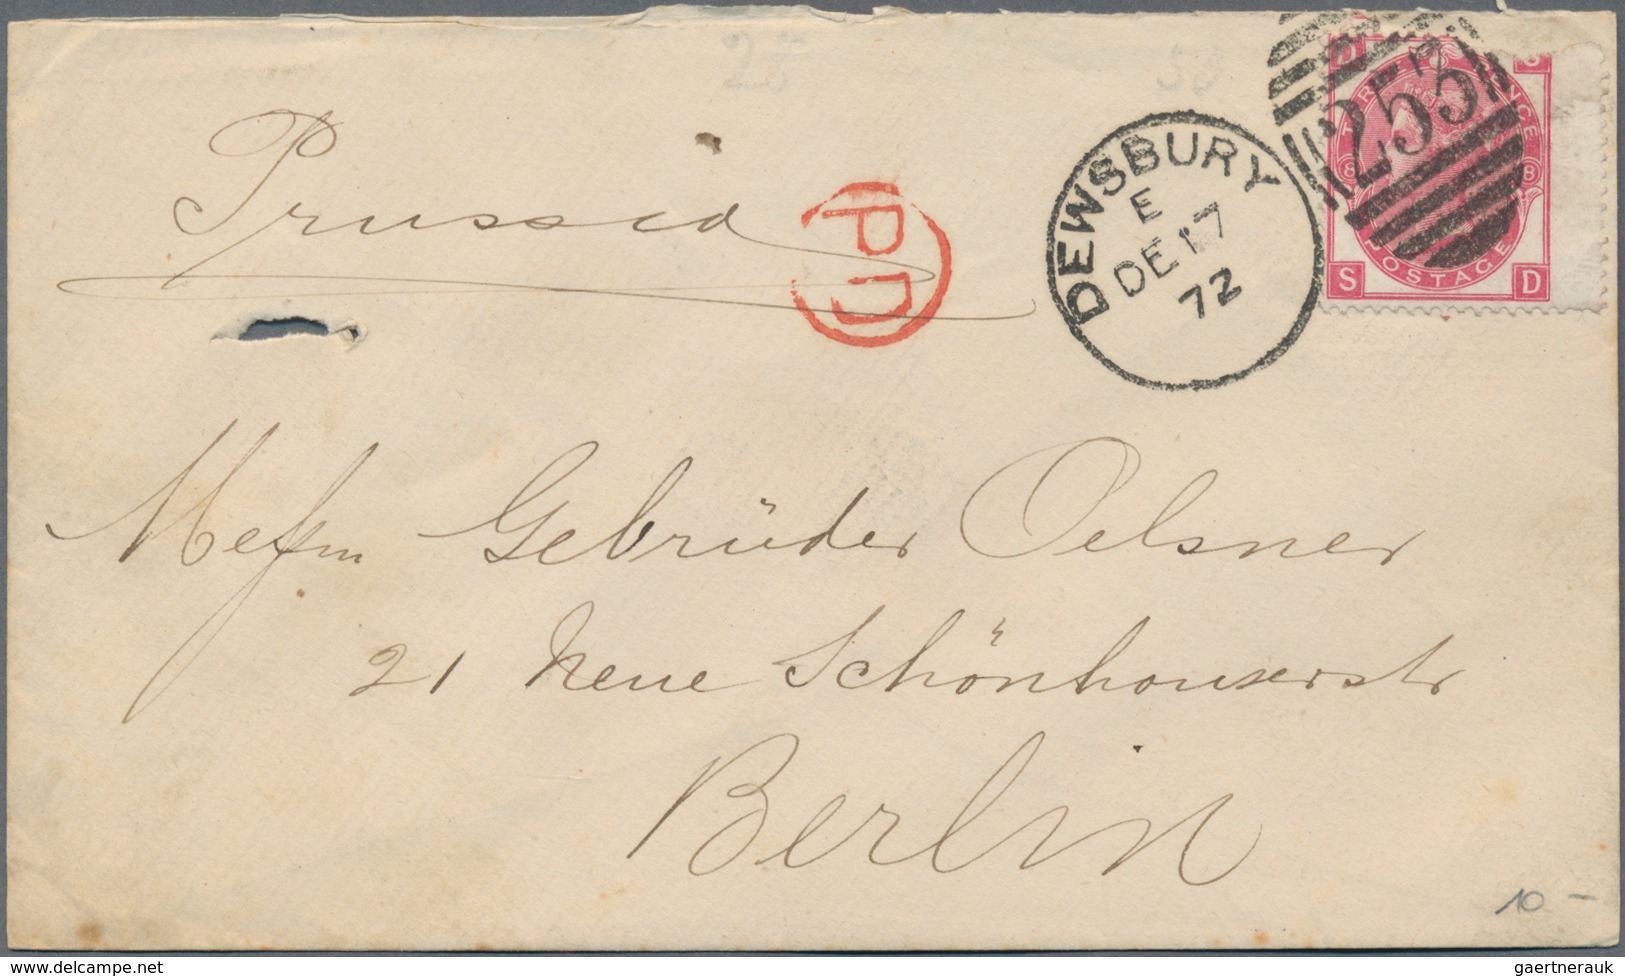 25
Prussia
PD
DEWSBURY
E
DE 17
72
253
D S
THREE PENCE
8 8
POSTAGE
S D
Messrs Gebrüder Oelsner
21 Neue Schönhouserstr
Berlin
10 -
www.delcampe.net
gaertnerauk